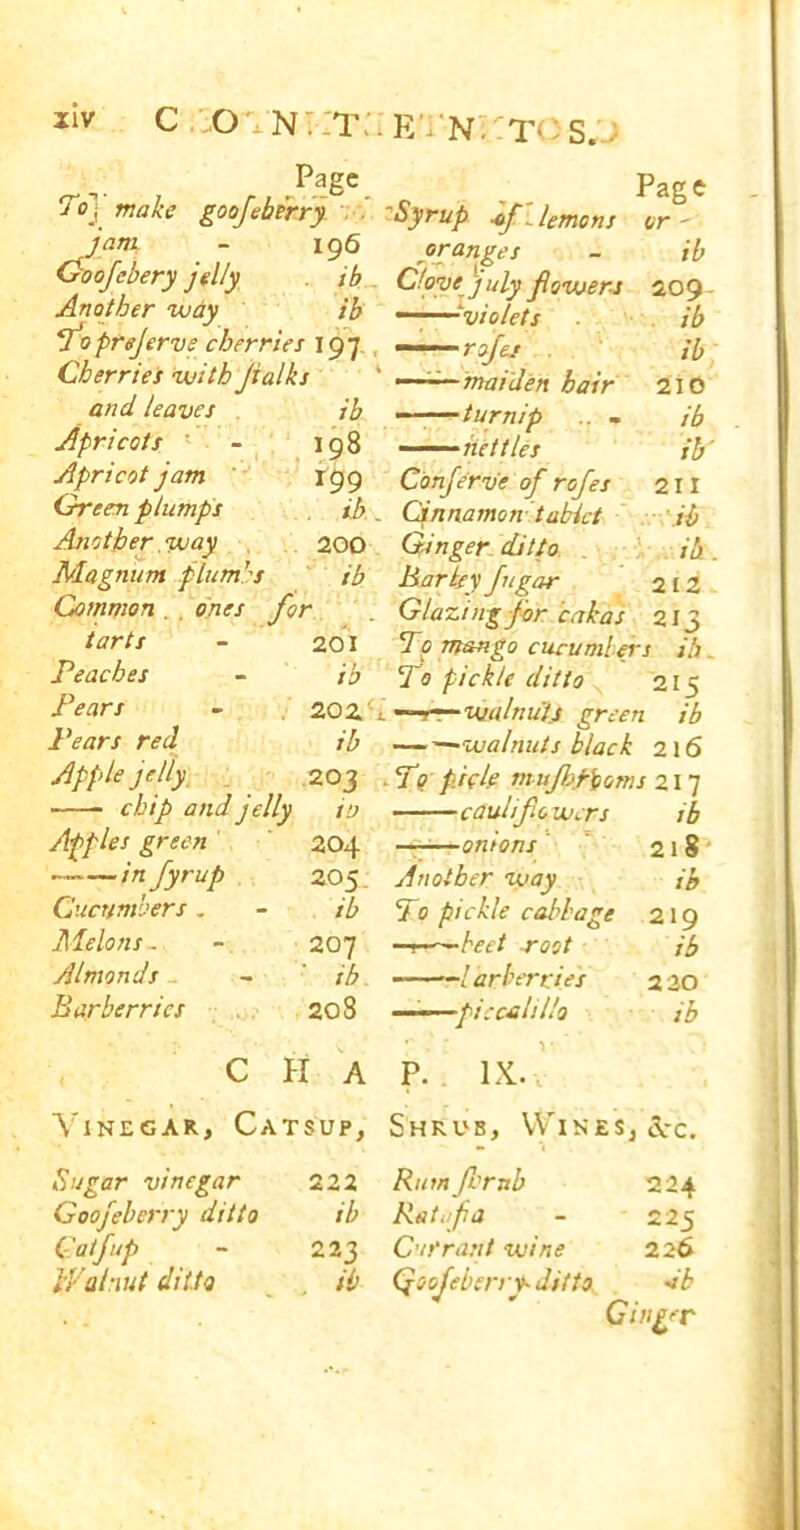 xiv CONTENTS.
Page
To make gooſeberry
jam - 196
Gooſebery jelly ib
Another way ib
To preſerve cherries 197
Cherries with ſtalks
and leaves ib
Apricots - 198
Apricot jam 199
Green plumps ib
Another way 200
Magnum plumbs ib
Common ones for
tarts - 201
Peaches - ib
Pears - 202
Pears red ib
Apple jelly 203
—— chip and jelly ib
Apples green 204
—— in ſyrup 205
Cucumbers - ib
Melons - 207
Almonds - ib
Barberries 208
Page
Syrup of lemons or
oranges - ib
Clove july flowers 209
—— violets ib
—— roſes ib
—— maiden hair 210
—— turnip - ib
—— nettles ib
Conſerve of roſes 211
Cinnamon tablet ib
Ginger ditto ib
Barley ſugar 212
Glazing for cakas 213
To mango cucumbers ib
To pickle ditto 215
—— walnuts green ib
—— walnuts black 216
To picle muſhrooms 217
—— cauliflowers ib
—— onions 218
Another way ib
To pickle cabbage 219
—— beet root ib
—— barberries 220
—— piccalillo ib
CHAP. IX.
VINEGAR, CATSUP, SHRUB, WINES, &c.
Sugar vinegar 222
Gooſeberry ditto ib
Catſup - 223
Walnut ditto ib
Rum ſhrub 224
Ratafia - 225
Currant wine 226
Gooſeberry ditto ib
Ginger